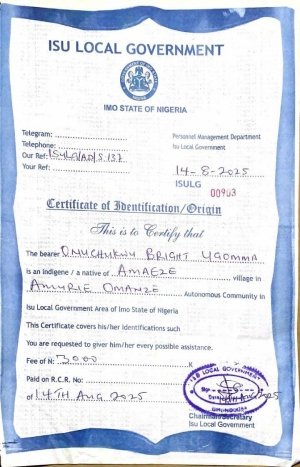 ISU LOCAL GOVERNMENT
IMO STATE OF NIGERIA
Telegram:
Telephone:
Our Ref: ISULG/AD/S.137
Your Ref:
Personnel Management Department
Isu Local Government
14-8-2025
ISULG
00903
Certificate of Identification/Origin
This is to Certify that
The bearer ONUCHUKWU BRIGHT UGOMMA
is an indigene / a native of AMAEZE village in
AMURIE OMANZE Autonomous Community in
Isu Local Government Area of Imo State of Nigeria
This Certificate covers his/her identifications such
You are requested to give him/her every possible assistance.
Fee of N: 3000 K
Paid on R.C.R. No:
of 14TH AUG 2025
ISU LOCAL GOVERNMENT
Chairman/Secretary
Isu Local Government